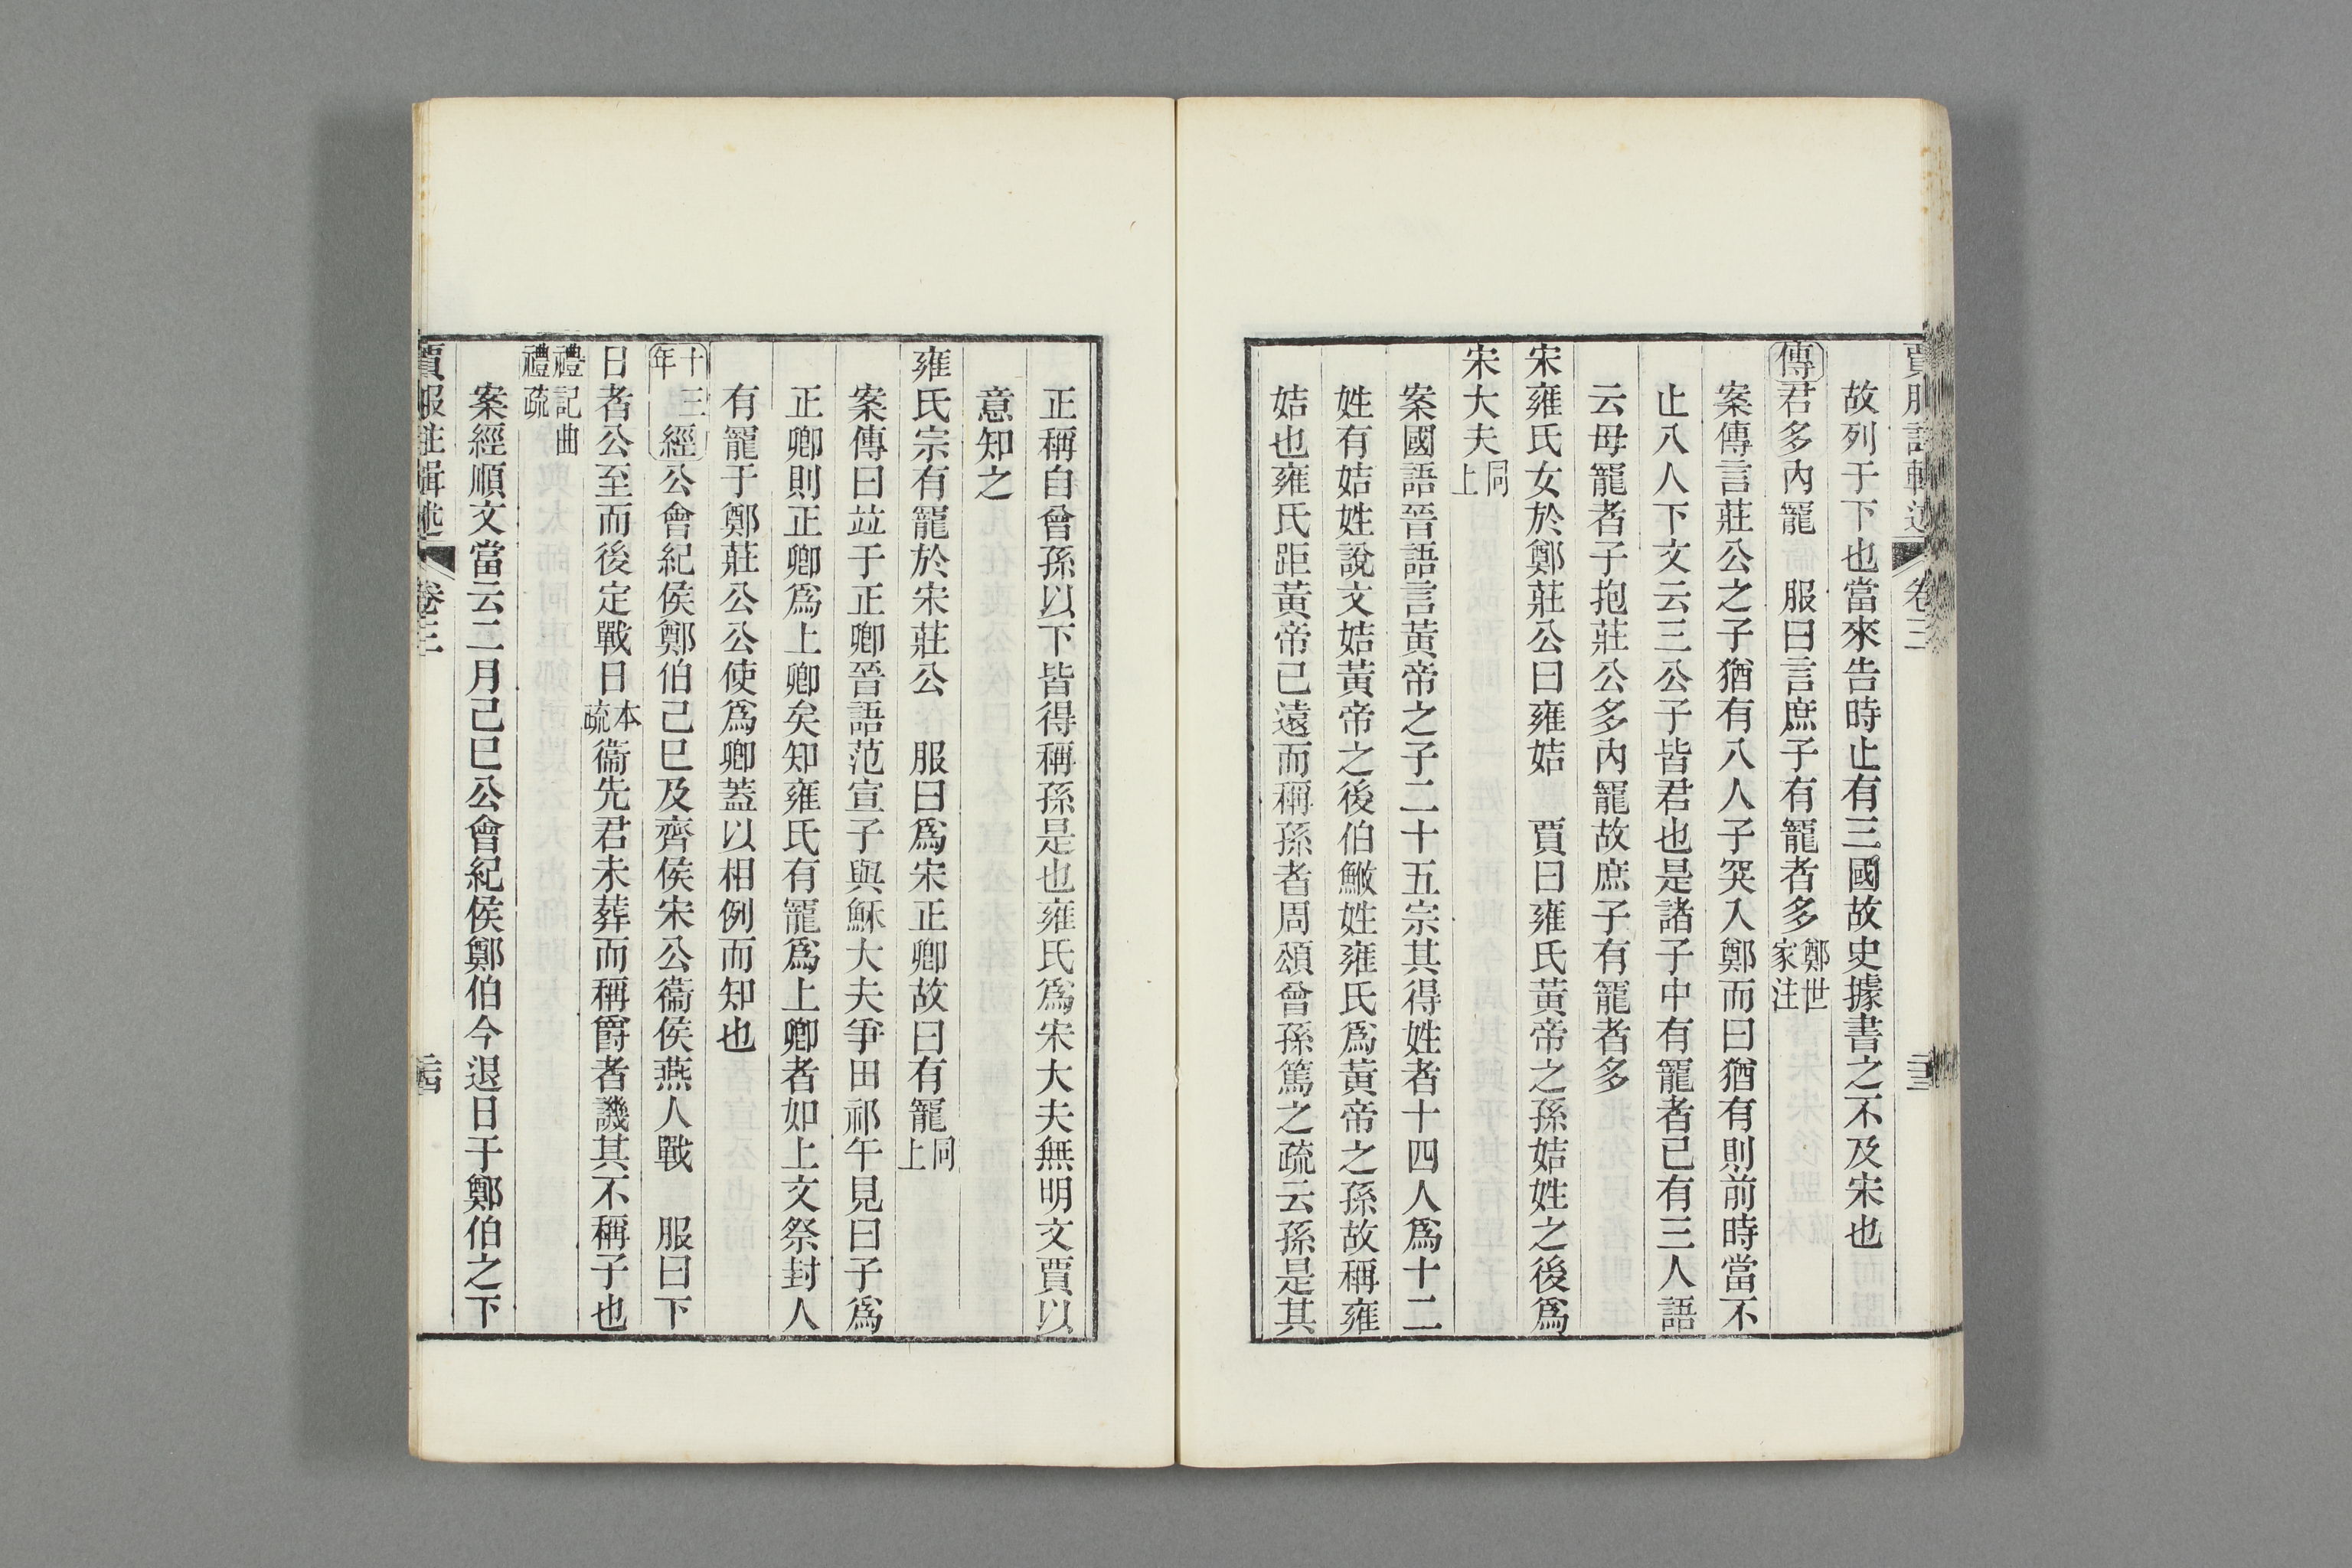 賈服註輯述 卷三 二十三
故列于下也當來告時止有三國故史據書之不及宋也
傳君多內寵 服曰言庶子有寵者多鄭世家注
案傳言莊公之子猶有八人子突入鄭而曰猶有則前時當不
止八人下文云三公子皆君也是諸子中有寵者已有三人語
云母寵者子抱莊公多內寵故庶子有寵者多
宋雍氏女於鄭莊公曰雍姞 賈曰雍氏黃帝之孫姞姓之後爲
宋大夫同上
案國語晉語言黃帝之子二十五宗其得姓者十四人爲十二
姓有姞姓說文姞黃帝之後伯鯈姓雍氏爲黃帝之孫故稱雍
姞也雍氏距黃帝已遠而稱孫者周頌曾孫篤之疏云孫是其
正稱自曾孫以下皆得稱孫是也雍氏爲宋大夫無明文賈以
意知之
雍氏宗有寵於宋莊公 服曰爲宋正卿故曰有寵同上
案傳曰竝于正卿晉語范宣子與龢大夫爭田祁午見曰子爲
正卿則正卿爲上卿矣知雍氏有寵爲上卿者如上文祭封人
有寵于鄭莊公公使爲卿蓋以相例而知也
十三年經公會紀侯鄭伯己巳及齊侯宋公衞侯燕人戰 服曰下
日者公至而後定戰日本疏衞先君未葬而稱爵者譏其不稱子也
禮記曲禮疏
案經順文當云二月己巳公會紀侯鄭伯今退日于鄭伯之下
賈服註輯述 卷三 二十四